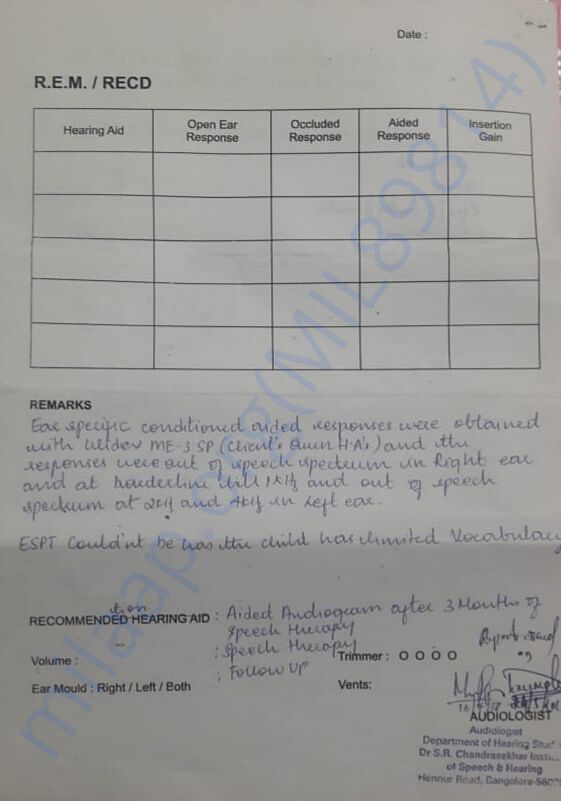 Date :
R.E.M. / RECD
Hearing Aid
Open Ear
Response
Occluded
Response
Aided
Response
Insertion
Gain
REMARKS
Ear specific conditioned aided responses were obtained
with Widex ME-3 SP (Client's Own H.A's) and the
responses were out of speech spectrum in Right ear
and at borderline till 1KHz and out of speech
spectrum at 2KHz and 4KHz in left ear.
ESPT Could'nt be has the child has limited Vocabulary
tion
RECOMMENDED HEARING AID : Aided Audiogram after 3 Months of
speech therapy
: Speech therapy
Volume :
: Follow Up
Trimmer : O O O O
Ear Mould : Right / Left / Both
Vents:
AUDIOLOGIST
Audiologist
Department of Hearing Stud
Dr S.R. Chandrasekhar Insti
of Speech & Hearing
Hennur Road, Bangalore-560
milaap.org(MIL89814)